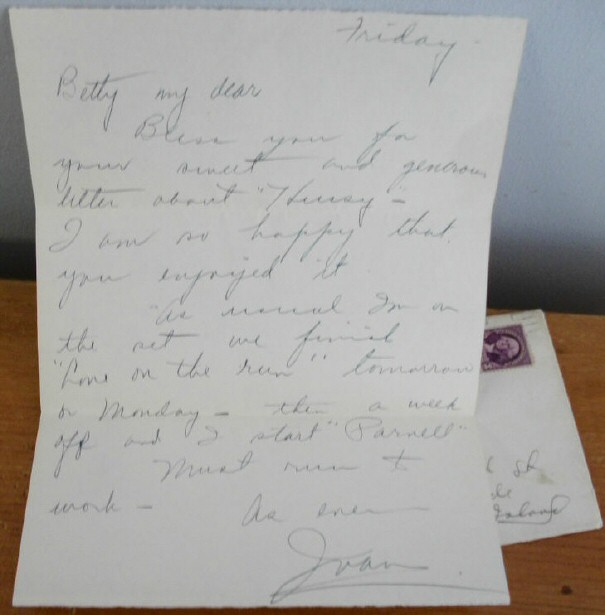 Friday -
Betty my dear
Bless you for
your sweet and generous
letter about "Hussy" -
I am so happy that
you enjoyed it
As usual I'm on
the set we finish
"Love on the run" tomorrow
or Monday - then a week
off and I start "Parnell"
Must run to
work - As ever
Joan
St